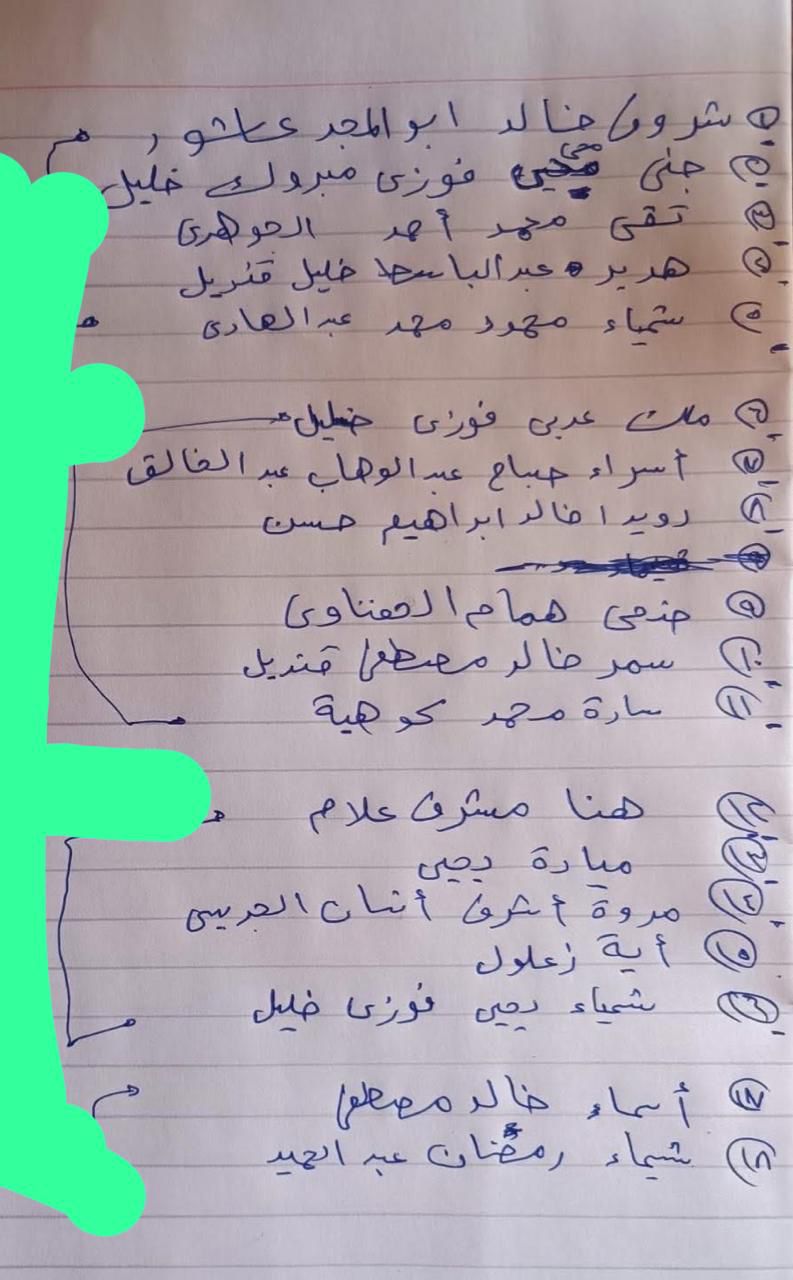 ١ شروق خالد ابو المجد عاشور
٢ جنى يحيى فوزى مبروك خليل
٣ تقى محمد أحمد الجوهرى
٤ هدير عبد الباسط خليل قنديل
٥ شيماء محمود محمد عبد الهادى
٦ ملك عربى فوزى خليل
٧ أسراء صباح عبد الوهاب عبد الخالق
٨ رويدا خالد ابراهيم حسن
٩ همام الحفناوى
١٠ سمر خالد مصطفى قنديل
١١ سارة محمد
١٢ هنا مشرف علام
١٣ ميادة يحيى
١٤ مروة أشرف
١٥ أية زعلول
١٦ شيماء يحيى فوزى خليل
١٧ أسماء خالد مصطفى
١٨ شيماء رمضان عبد الحميد